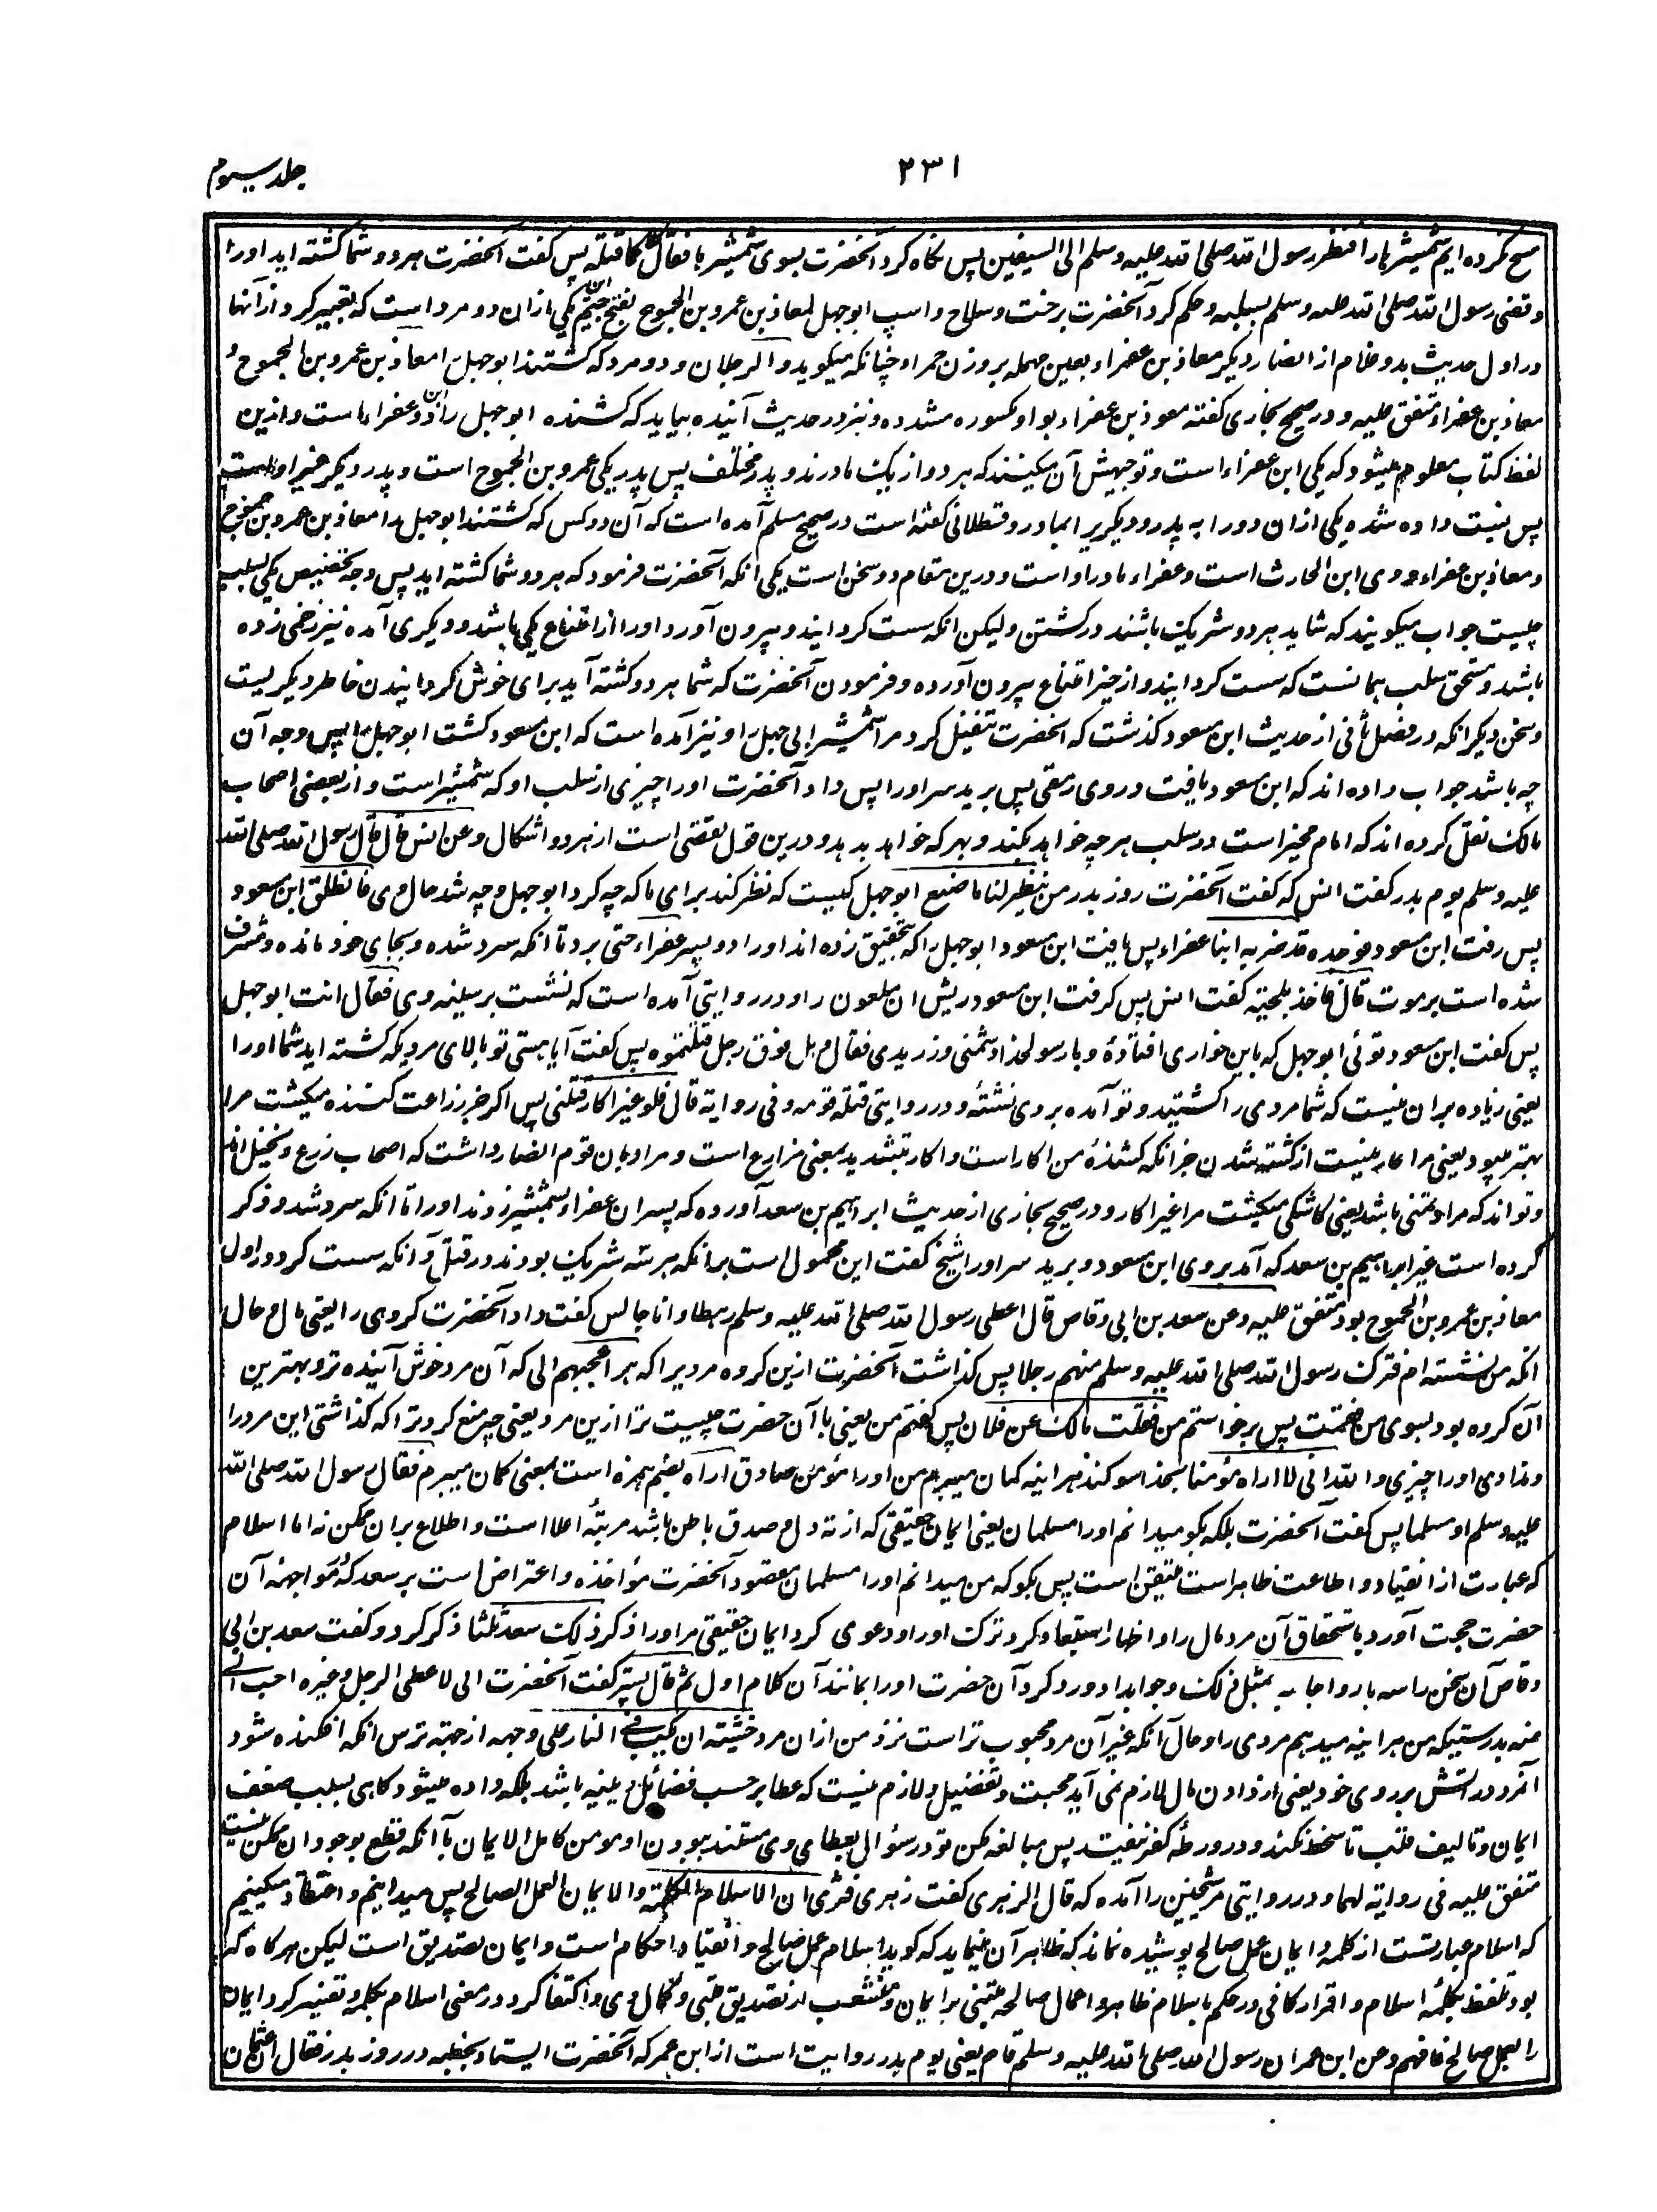 جلد سیوم
۲۳۱
مسح نکرده ایم شمشیرها را فنظر رسول الله صلی الله علیه وسلم الی السیفین پس نگاه کرد آنحضرت بسوی شمشیرها فقال کلاکما قتله پس گفت آنحضرت هر دو شما کشته اید اورا
وقضی رسول الله صلی الله علیه وسلم بسلبه وحکم کرد آنحضرت برخت وسلاح واسپ ابو جهل لمعاذ بن عمرو بن الجموح بفتح جیم یکی ازان دو مرد است که تعبیر کرد ازآنها
در اول حدیث بدو غلام از انصار دیگر معاذ بن عفراء بعین مهمله بر وزن حمراء چنانکه میگوید والرجلان ودو مرد که کشتند ابو جهل را معاذ بن عمرو بن الجموح و
معاذ بن عفراء متفق علیه ودر صحیح بخاری گفته معوذ بن عفراء بواو مکسوره مشدده ونیز در حدیث آینده بیاید که کشنده ابو جهل را دو ابن عفراء است وازین
لفظ کتاب معلوم میشود که یکی ابن عفراء است وتوجیهش آن میکنند که هر دو از یک مادرند وپدر مختلف پس پدر یکی عمرو بن الجموح است وپدر دیگر غیر اوست
پس نسبت داده شده یکی ازان دو را به پدر ودیگر را بمادر وقسطلانی گفته است در صحیح مسلم آمده است که آن دو کس که کشتند ابو جهل را معاذ بن عمرو بن جموح
ومعاذ بن عفراء ووی ابن الحارث است وعفراء مادر اواست ودرین مقام دو سخن است یکی آنکه آنحضرت فرمود که هر دو شما کشته اید پس وجه تخصیص یکی بسلب
چیست جواب میگویند که شاید هر دو شریک باشند در کشتن ولیکن آنکه سست گردانید وبیرون آورد اورا از امتناع یکی باشد ودیگری آمده نیز زخمی زده
باشد ومستحق سلب همانست که سست گردانید واز حیز امتناع بیرون آورده وفرمودن آنحضرت که شما هر دو کشته آید برای خوش گردانیدن خاطر دیگریست
وسخن دیگر آنکه در فصل ثانی از حدیث ابن مسعود گذشت که آنحضرت تنفیل کرد مرا شمشیر ابی جهل را ونیز آمده است که ابن مسعود کشت ابو جهل را پس وجه آن
چه باشد جواب داده اند که ابن مسعود یافت در وی رمقی پس برید سر اورا پس داد آنحضرت اورا چیزی از سلب او که شمشیر است واز بعضی اصحاب
مالک نقل کرده اند که امام مخیر است در سلب هر چه خواهد بکند وبهر که خواهد بدهد ودرین قول تفصی است از هر دو اشکال وعن انس قال قال رسول الله صلی الله
علیه وسلم یوم بدر گفت انس که گفت آنحضرت روز بدر من ینظر لنا ما صنع ابو جهل کیست که نظر کند برای ما که چه کرد ابو جهل وچه شد حال وی فانطلق ابن مسعود
پس رفت ابن مسعود فوجده قد ضربه ابنا عفراء پس یافت ابن مسعود ابو جهل را که تحقیق زده اند اورا دو پسر عفراء حتی برد تا آنکه سرد شده وبجای خود مانده ومشرف
شده است بر موت قال فاخذ بلحیته گفت انس پس گرفت ابن مسعود ریش ان ملعون را ودر روایتی آمده است که نشست بر سینه وی فقال انت ابو جهل
پس گفت ابن مسعود توئی ابو جهل که باین خواری افتادهٔ وبا رسولخدا دشمنی ورزیدی فقال وهل فوق رجل قتلتموه پس گفت آیا هستی تو بالای مردیکه کشته اید شما اورا
یعنی زیاده بران نیست که شما مردی را کشتید وتو آمده بروی نشسته ودر روایتی قتله قومه وفی روایة قال فلو غیر اکار قتلنی پس اگر غیر زراعت کننده میکشت مرا
بهتر میبود یعنی مرا عار نیست از کشته شدن جز آنکه کشندهٔ من اکار است واکار بتشدید بمعنی مزارع است ومراد بان قوم انصار داشت که اصحاب زرع ونخیل اند
وتواند که مراد تمنی باشد یعنی کاشکی میکشت مرا غیر اکار ودر صحیح بخاری از حدیث ابراهیم بن سعد آورده که پسران عفراء بشمشیر زدند اورا تا آنکه سرد شد وذکر
کرده است غیر ابراهیم بن سعد که آمد بروی ابن مسعود وبرید سر اورا شیخ گفت این محمول است برانکه هر سه شریک بودند در قتل وآنکه سست کرد در اول
معاذ بن عمرو بن الجموح بود متفق علیه وعن سعد بن ابی وقاص قال اعطی رسول الله صلی الله علیه وسلم رهطا وانا جالس گفت داد آنحضرت گروهی را یعنی مال وحال
آنکه من نشسته ام فترک رسول الله صلی الله علیه وسلم منهم رجلا پس گذاشت آنحضرت ازین گروه مردیرا که هو اعجبهم الی که آن مرد خوش آینده تر وبهترین
آن گروه بود بسوی من فقمت پس برخواستم من فقلت مالک عن فلان پس گفتم من یعنی با آن حضرت چیست ترا ازین مرد یعنی چه منع کرد ترا که گذاشتی این مرد را
وندادی اورا چیزی والله انی لاراه مؤمنا بخدا سوگند هر اینه گمان میبرم من اورا مؤمن صادق اراه بضم همزه است بمعنی گمان میبرم فقال رسول الله صلی الله
علیه وسلم او مسلما پس گفت آنحضرت بلکه بگو میدانم اورا مسلمان یعنی ایمان حقیقی که از ته دل وصدق باطن باشد مرتبهٔ اعلا است واطلاع بران ممکن نه اما اسلام
که عبارت از انقیاد واطاعت ظاهر است متیقن است پس بگو که من میدانم اورا مسلمان مقصود آنحضرت مؤاخذه واعتراض است بر سعد که مواجهه آن
حضرت حجت آورد باستحقاق آن مرد مال را واظهار استبعاد کرد ترک اورا ودعوی کرد ایمان حقیقی مر اورا ذکر ذلک سعد ثلثا ذکر کرد وگفت سعد بن ابی
وقاص آن سخن را سه بار واجابه بمثل ذلک وجواب داد ورد کرد آن حضرت اورا بمانند آن کلام اول ثم قال پستر گفت آنحضرت انی لاعطی الرجل وغیره احب الی
منه بدرستیکه من هر اینه میدهم مردی را وحال آنکه غیر آن مرد محبوب تر است نزد من ازان مرد خشیة ان یکب فی النار علی وجهه از جهة ترس آنکه افکنده شود
آنمرد در آتش بر روی خود یعنی از دادن مال لازم نمی آید محبت وتفضیل ولازم نیست که عطا بر حسب فضائل دینیه باشد بلکه داده میشود گاهی بسبب ضعف
ایمان وتالیف قلب تا سخط نکند ودر ورطهٔ کفر نیفتد پس مبالغه مکن تو در سؤال بعطای وی مستند ببودن او مومن کامل الایمان با آنکه قطع بوجود ان ممکن نیست
متفق علیه فی روایة لهما ودر روایتی مر شیخین را آمده که قال الزهری گفت زهری فنری ان الاسلام الکلمة والایمان العمل الصالح پس میدانیم واعتقاد میکنیم
که اسلام عبارتست از کلمه وایمان عمل صالح پوشیده نماند که ظاهر آن مینماید که گوید اسلام عمل صالح وانقیاد احکام است وایمان تصدیق است لیکن هرگاه که
بود تلفظ بکلمهٔ اسلام واقرار کافی در حکم باسلام ظاهر واعمال صالحه مبتنی بر ایمان ومنشعب از تصدیق قلبی وکمال وی واکتفا کرد در معنی اسلام بکلمه وتفسیر کرد ایمان
را بعمل صالح فافهم وعن ابن عمر ان رسول الله صلی الله علیه وسلم قام یعنی یوم بدر روایت است از ابن عمر که آنحضرت ایستاد بخطبه در روز بدر فقال ان عثمان